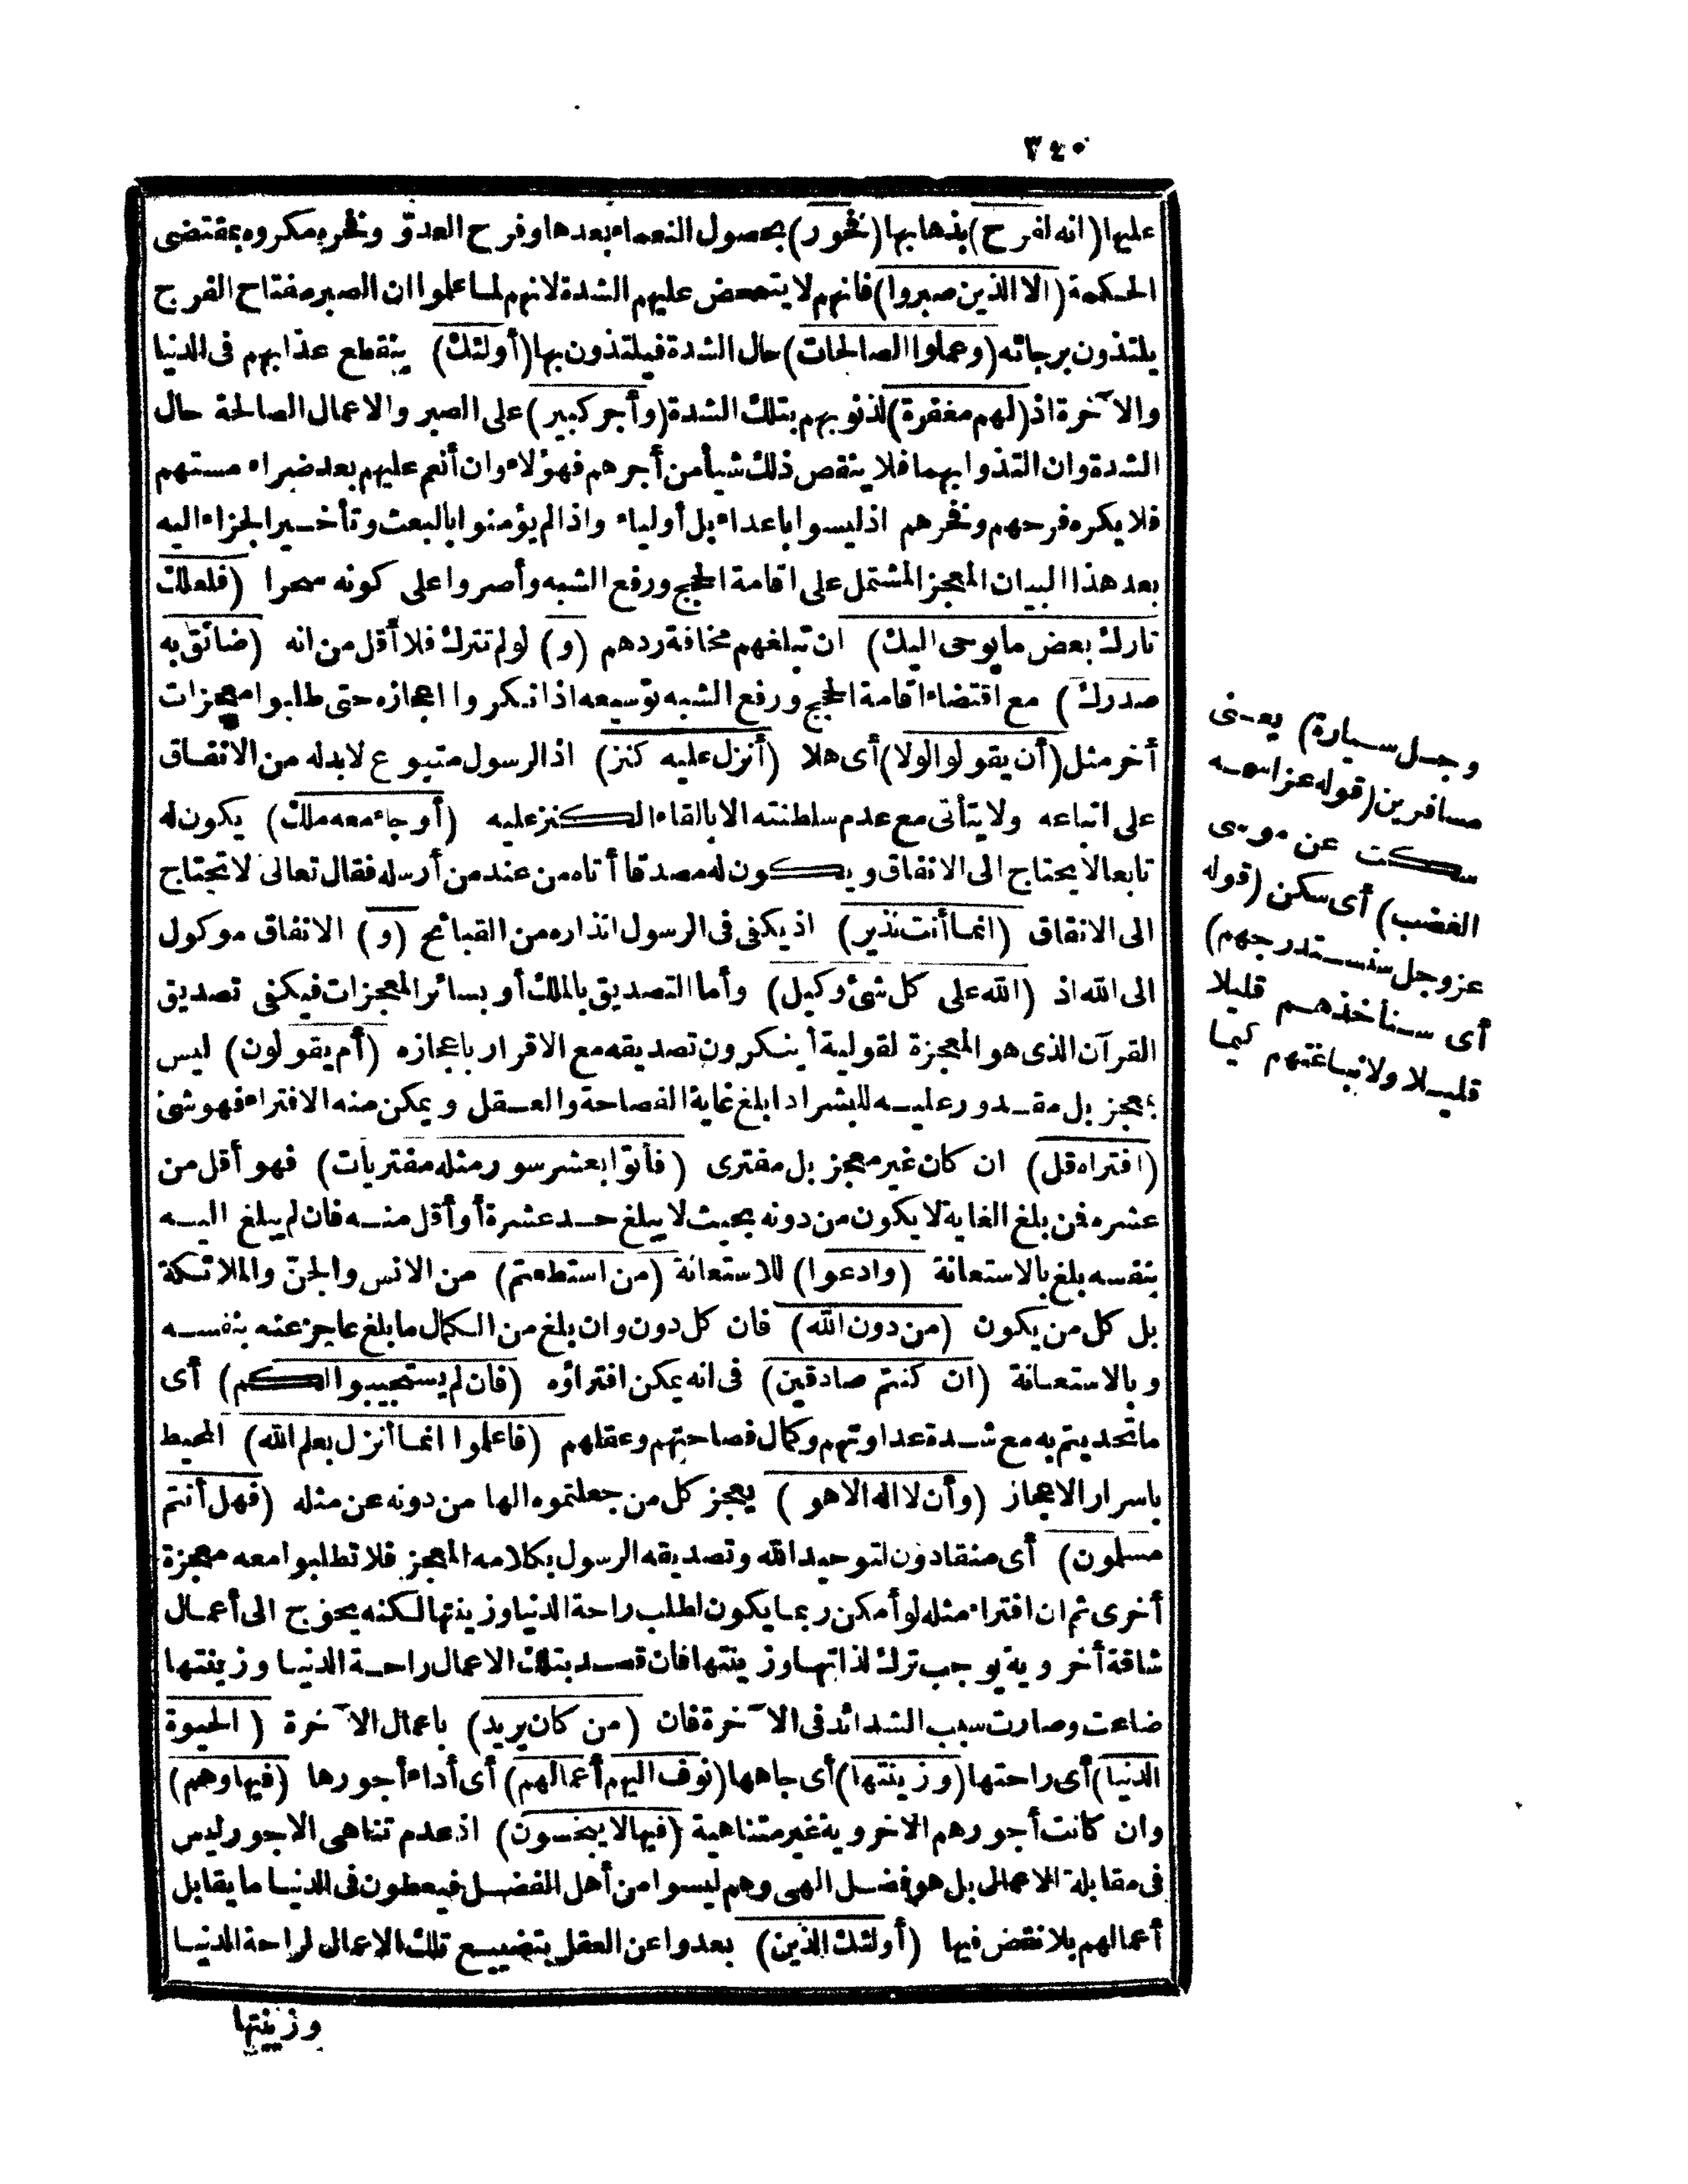 ٣٤٠
عليها (انه لفرح) بذهابها (فخور) بحصول النعماء بعدها وفرح العدوّ وفخره مكروه بمقتضى
الحكمة (الا الذين صبروا) فانهم لا يتمحض عليهم الشدة لانهم لما علموا ان الصبر مفتاح الفرج
يلتذون برجائه (وعملوا الصالحات) حال الشدة فيلتذون بها (أولئك) ينقطع عذابهم فى الدنيا
والآخرة اذ (لهم مغفرة) لذنوبهم بتلك الشدة (وأجر كبير) على الصبر والاعمال الصالحة حال
الشدة وان التذوا بهما فلا ينقص ذلك شيأ من أجرهم فهؤلاء وان أنعم عليهم بعد ضراء مستهم
فلا يكره فرحهم وفخرهم اذ ليسوا باعداء بل أولياء واذا لم يؤمنوا بالبعث وتأخير الجزاء اليه
بعد هذا البيان المعجز المشتمل على اقامة الحجج ورفع الشبه وأصروا على كونه سحرا (فلعلك
تارك بعض ما يوحى اليك) ان تبلغهم مخافة ردهم (و) لو لم تترك فلا أقل من انه (ضائق به
صدرك) مع اقتضاء اقامة الحجج ورفع الشبه توسيعه اذ انكروا اعجازه حتى طلبوا معجزات
أخر مثل (أن يقولوا لولا) أى هلا (أنزل عليه كنز) اذ الرسول متبوع لابد له من الانفاق
على اتباعه ولا يتأتى مع عدم سلطنته الا بالقاء الكنز عليه (أو جاء معه ملك) يكون له
تابعا لا يحتاج الى الانفاق ويكون له مصدقا أتاه من عند من أرسله فقال تعالى لا تحتاج
الى الانفاق (انما أنت نذير) اذ يكفى فى الرسول انذاره من القبائح (و) الانفاق موكول
الى الله اذ (الله على كل شئ وكيل) وأما التصديق بالملك أو بسائر المعجزات فيكفى تصديق
القرآن الذى هو المعجزة لقولية أينكرون تصديقه مع الاقرار باعجازه (أم يقولون) ليس
بمعجز بل مقدور عليه للبشر اذا بلغ غاية الفصاحة والعقل ويمكن منه الافتراء فهو شئ
(افتراه قل) ان كان غير معجز بل مفترى (فأتوا بعشر سور مثله مفتريات) فهو أقل من
عشره فمن بلغ الغاية لا يكون من دونه بحيث لا يبلغ حد عشرة أو أقل منه فان لم يبلغ اليه
بنفسه بلغ بالاستعانة (وادعوا) للاستعانة (من استطعتم) من الانس والجنّ والملائكة
بل كل من يكون (من دون الله) فان كل دون وان بلغ من الكمال ما بلغ عاجز عنه بنفسه
وبالاستعانة (ان كنتم صادقين) فى انه يمكن افتراؤه (فان لم يستجيبوا لكم) أى
ما تحديتم به مع شدة عداوتهم وكمال فصاحتهم وعقلهم (فاعلموا انما أنزل بعلم الله) المحيط
باسرار الاعجاز (وأن لا اله الا هو) يعجز كل من جعلتموه الها من دونه عن مثله (فهل أنتم
مسلمون) أى منقادون لتوحيد الله وتصديقه الرسول بكلامه المعجز فلا تطلبوا معه معجزة
أخرى ثم ان افتراء مثله لو أمكن ربما يكون لطلب راحة الدنيا وزينتها لكنه يحوج الى أعمال
شاقة أخروية يوجب ترك لذاتها وزينتها فان قصد بتلك الاعمال راحة الدنيا وزينتها
ضاعت وصارت سبب الشدائد فى الآخرة فان (من كان يريد) باعمال الآخرة (الحيوة
الدنيا) أى راحتها (وزينتها) أى جاهها (نوف اليهم أعمالهم) أى أداء أجورها (فيها وهم)
وان كانت أجورهم الاخروية غير متناهية (فيها لا يبخسون) اذ عدم تناهى الاجور ليس
فى مقابلة الاعمال بل هو فضل الهى وهم ليسوا من أهل الفضل فيعطون فى الدنيا ما يقابل
أعمالهم بلا نقض فيها (أولئك الذين) بعدوا عن العقل بتضييع تلك الاعمال لراحة الدنيا
وزينتها
وجل سيارة) يعنى
مسافرين (قوله عز اسمه
سكت عن موسى
الغضب) أى سكن (قوله
عز وجل سنستدرجهم)
أى سنأخذهم قليلا
قليلا ولا نباغتهم كما